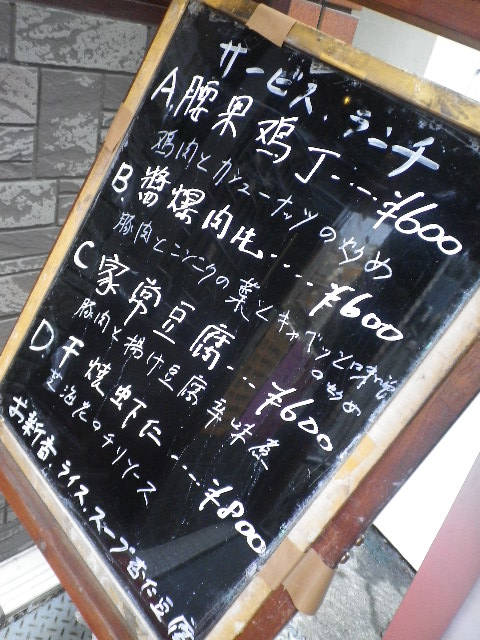 サービス.ランチ
A.腰果鸡丁---¥600
鸡肉とカシューナッツの炒め
B.醬爆肉片----¥600
豚肉とニンニクの葉とキャベツと味噌の炒め
C 家常豆腐---¥600
豚肉と揚げ豆腐辛味煮
D 干焼虾仁---¥800
芝海老のチリソース
お新香.ライス.スープ杏仁豆腐